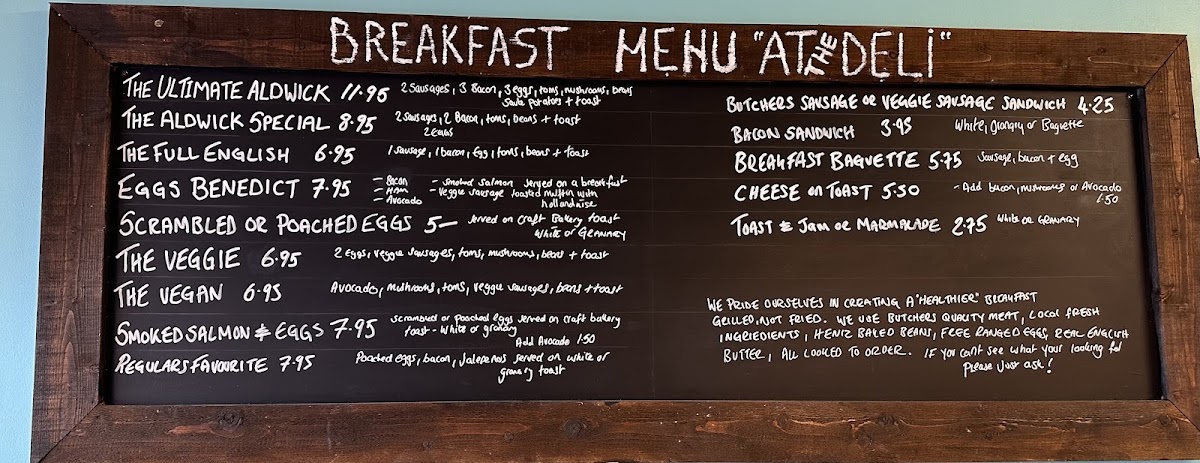 BREAKFAST MENU "AT THE DELi"
THE ULTIMATE ALDWICK 11.95 2 Sausages, 3 Bacon, 3 eggs, toms, mushrooms, beans
Saute Potatoes + toast
THE ALDWICK SPECIAL 8.95 2 Sausages, 2 Bacon, toms, beans + toast
2 EGGS
THE FULL ENGLISH 6.95 1 Sausage, 1 bacon, Egg, toms, beans + toast
EGGS BENEDICT 7.95 - Bacon - Smoked Salmon served on a breakfast
- Ham - Veggie Sausage toasted muffin with
- Avocado hollandaise
SCRAMBLED OR POACHED EGGS 5- served on Craft Bakery toast
White or GRANARY
THE VEGGIE 6.95 2 Eggs, Veggie Sausages, toms, mushrooms, beans + toast
THE VEGAN 6.95 Avocado, mushrooms, toms, Veggie Sausages, beans + toast
SMOKED SALMON & EGGS 7.95 Scrambled or Poached Eggs served on craft bakery
toast - White or granary
Add Avocado 1.50
REGULARS FAVOURITE 7.95 Poached eggs, bacon, Jalepenos served on white or
granary toast
BUTCHERS SAUSAGE OR VEGGIE SAUSAGE SANDWICH 4.25
BACON SANDWICH 3.95 White, Granary or Baguette
BREAKFAST BAGUETTE 5.75 Sausage, bacon + egg
CHEESE on TOAST 5.50 - Add bacon, mushrooms or Avocado
1.50
TOAST & JAM OR MARMALADE 2.75 White OR GRANARY
WE PRIDE OURSELVES IN CREATING A "HEALTHIER" BREAKFAST
GRILLED, NOT FRIED. WE USE BUTCHERS QUALITY MEAT, LOCAL FRESH
INGREDIENTS, HEINZ BAKED BEANS, FREE RANGED EGGS, REAL ENGLISH
BUTTER, ALL COOKED TO ORDER. IF YOU CANT SEE WHAT YOUR LOOKING FOR
Please Just ask!